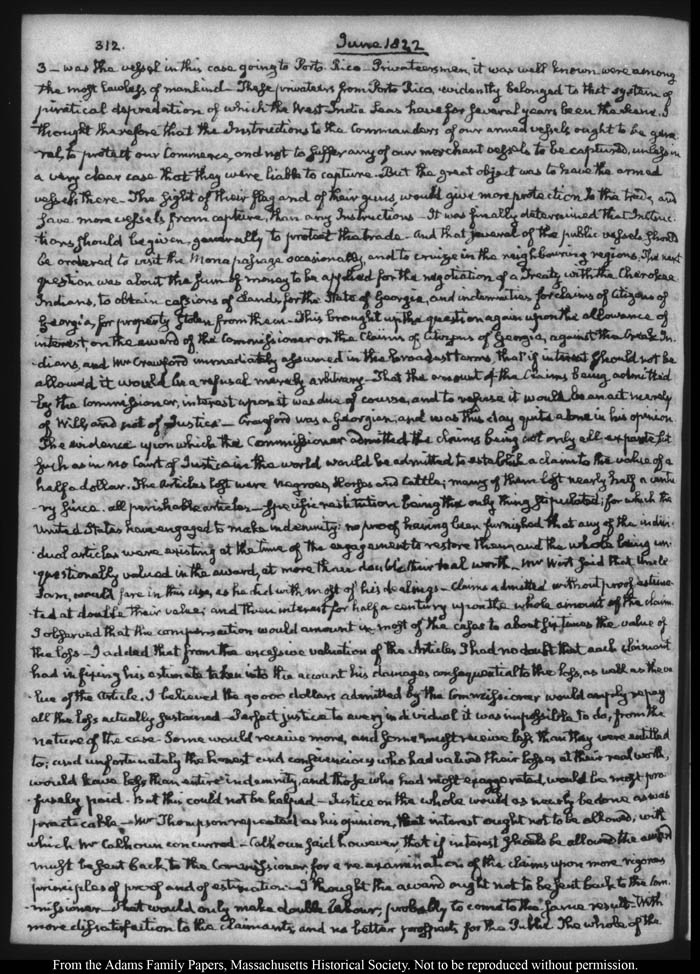 312.
June 1822
3 – was the vessel in this case going to Porto Rico. Privateersmen, it was well known were among
the most lawless of mankind – These privateers from Porto Rico, evidently belonged to that system of
piratical depredation of which the West India Seas have for several years been the scene. I
thought therefore that the Instructions to the Commanders of our armed vessels ought to be gene
ral, to protect our Commerce, and not to suffer any of our merchant vessels to be captured, unless in
a very clear case that they were liable to capture – But the great object was to have the armed
vessels there – The sight of their flag and of their guns, would give more protection to the trade, and
save more vessels from capture, than any Instructions – It was finally determined that Instruc-
tions should be given, generally to protect the trade – And that several of the public vessels should
be ordered to visit the Mona passage occasionally, and to cruize in the neighbouring regions. The next
question was about the sum of money to be applied for the negotiation of a Treaty with the Cherokee
Indians, to obtain cessions of lands, for the State of Georgia, and indemnities for claims of Citizens of
Georgia, for property stolen from them – This brought up the question again upon the allowance of
interest, on the award of the Commissioner on the Claims of Citizens of Georgia, against the Creek In-
dians, and Mr Crawford immediately assumed in the broadest terms, that if interest should not be
allowed it would be a refusal merely arbitrary – That the amount of the Claims being admitted
by the Commissioner, interest upon it was due of course, and to refuse it would be an act merely
of Will, and not of Justice – Crawford was a Georgian, and was this day quite alone in his opinion
The evidence upon which the Commissioner admitted the claims being not only all ex parte, but
such as in no Court of Justice in the world would be admitted to establish a claim to the value of a
half a dollar. The Articles lost were Negroes, Horses and Cattle; many of them lost nearly half a centu
-ry since – all perishable articles – specific restitution being the only thing stipulated; for which the
United States have engaged to make indemnity: no proof having been furnished that any of the indivi-
dual articles were existing at the time of the engagement to restore them, and the whole being un-
questionably valued in the award, at more than double their real worth – Mr Wirt said that Uncle
Sam, would fare in this case, as he did with most of his dealings – Claims admitted without proof, estima-
ted at double their value; and then interest for half a century upon the whole amount of the claim.
I observed that the compensation would amount in most of the cases to about six times the value of
the loss – I added that from the excessive valuation of the Articles I had no doubt that each claimant
had in fixing his estimate taken into the account his damages consequential to the loss, as well as the va
lue of the Article. I believed the 90000 dollars admitted by the Commissioner would amply repay
all the loss actually sustained – Perfect justice to every individual it was impossible to do, from the
nature of the case – Some would receive more, and some might receive less than they were entitled
to; and unfortunately the honest and conscientious who had valued their losses at their real worth,
would have less than entire indemnity, and those who had most exaggerated, would be most pro
-fusely paid – But this could not be helped – Justice on the whole would as nearly be done as was
practicable – Mr Thompson repeated as his opinion, that interest ought not to be allowed; with
which Mr Calhoun concurred – Calhoun said however, that if interest should be allowed the award
must be sent back to the Commissioner, for a re-examination of the claims upon more rigorous
principles of proof and of estimation – I thought the award ought not to be sent back to the Com-
missioner – That would only make double labour; probably to come to the same result – With
more dissatisfaction to the claimants, and no better prospects for the Public. The whole of the
From the Adams Family Papers, Massachusetts Historical Society. Not to be reproduced without permission.